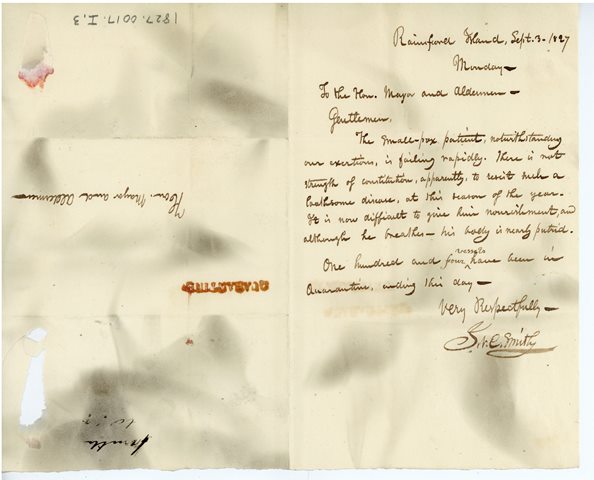 Rainsford Island, Sept. 3. 1827
Monday
To the Hon. Mayor and Aldermen
Gentlemen,
The small-pox patient, notwithstanding
our exertions, is failing rapidly. There is not
strength of constitution, apparently, to resist such a
loathsome disease, at this season of the year.
It is now difficult to give him nourishment, and
although he breathes his body is nearly putrid.
One hundred and four vessels have been in
Quarantine, ending this day
Very Respectfully
J. V. C. Smith
1827.0017.I.3
Hon. Mayor and Aldermen
QUARANTINE